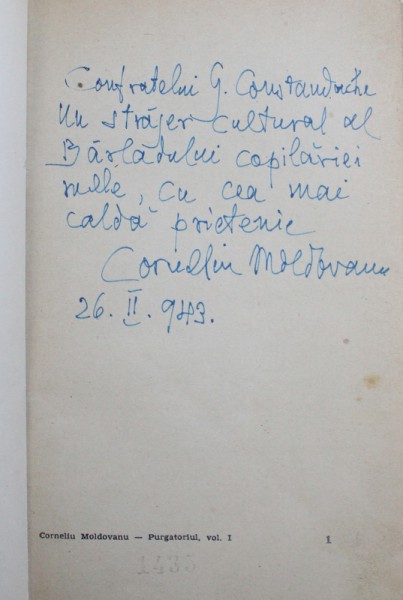 Confratelui G. Constandache
Un străjer cultural al
Bârladului copilăriei
mele, cu cea mai
caldă prietenie
Corneliu Moldovanu
26. II. 943.
Corneliu Moldovanu — Purgatoriul, vol. I 1
1435